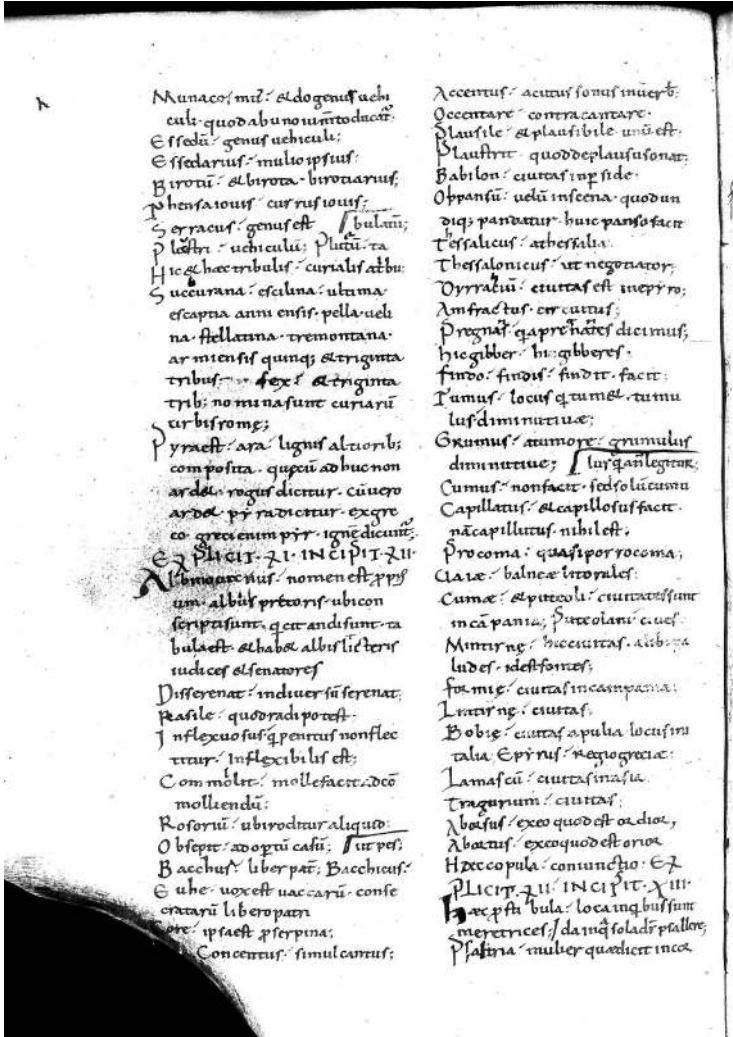 Munacos mul. & do genus uehi
culi. quod ab uno iumto ducat.
Essedū. genus uehiculi;
Essedarius. mulio ipsius.
Birotū. & birota. birotiarius;
Phensa iouis. currus iouis;
Serracus. genus est bulatū;
Plostri. uehiculū; Plutū. ta
Hic & hæc tribulis. curialis at bu;
Succurana. escilina. ultima.
escaptia anniensis. pella. ueli
na. stellatina. tremontana.
armiensis quinq; & triginta
tribus. sex. & triginta
trib; nomina sunt curiarū
urbis romę;
Pyra est. ara. lignis altiorib;
composita. quę cū adhuc non
ard&. rogus dicitur. cū uero
ard&. pyra dicitur. ex gre
co. greci enim pyr. ignē dicunt;
EXPLICIT. XI. INCIPIT. XII.
nomen est ppri
um. albus pretoris. ubi con
scripti sunt. q citandi sunt. ta
bula est. & hab& albis litteris
iudices & senatores
Disserenat. in diuersū serenat;
Rasile. quod radi potest.
Inflexuosus q penitus non flec
titur. Inflexibilis est;
Commolit. molle facit. ad cō
molliendū;
Rosoriū. ubi roditur aliquid.
Obsepit. adoptū casū; ut pes;
Bacchus. liber pat; Bacchicus.
Euhe. uox est uaccarū. conse
cratarū libero patri
Core. ipsa est pserpina;
Concentus. simul cantus;
Accentus. acutus sonus in uerb.
Occentare. contra cantare.
Plausile. & plausibile unū est.
Plaustrit. quod de plausu sonat;
Babilon. ciuitas in pside.
Oppansū. uelū in scena. quod un
diq; pandatur. huic panso facit
Thessalicus. a thessalia.
Thessalonicus. ut negotiator;
Dyrrachiū. ciuitas est in epyro;
Amfractus. circuitus;
Pregnas. q a pregnates dicimus;
hic gibber. hi gibberes.
findo. findis. findit. facit;
Tumus. locus q tum&. tumu
lus diminutiuæ;
Grumus. a tumore. grumulus
diminutiue; lus q an legitur;
Cumus. non facit. sed solū cumu
Capillatus. & capillosus facit.
nā capillutus. nihil est;
Procoma. quasi porro coma;
Baiæ. balneæ litorales.
Cumæ. & puteoli. ciuitates sunt
in cāpania; Puteolani ciues.
Mintirnę. hec ciuitas.
ludes. id est fontes;
formię. ciuitas in campania;
ciuitas;
Bobię. ciuitas apulia locus in i
talia. Epyrus. regio greciæ.
Lamascū. ciuitas in asia.
Tragurium. ciuitas;
Aborsus. exeo quod est ordior,
Abortus. exeo quod est orior
Hæc copula. coniunctio. EX
PLICIT. XII. INCIPIT. XIII.
hæc psti bula. loca in qbus sunt
meretrices; da in q soladr psallere;
Psaltria. mulier quæ dicit in cor